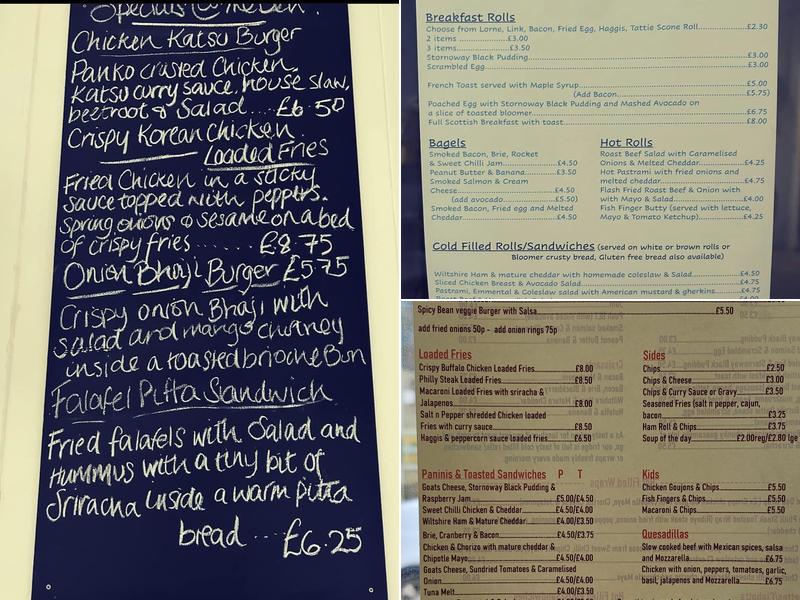 Specials @ The Den
Chicken Katsu Burger
Panko crusted Chicken,
Katsu curry sauce, house slaw,
beetroot & Salad.....£6.50
Crispy Korean Chicken
Loaded Fries
Fried Chicken in a sticky
sauce topped with peppers.
Spring onions & sesame on a bed
of crispy fries ........ £8.75
Onion Bhaji Burger £5.75
Crispy onion Bhaji with
salad and mango chutney
inside a toasted brioche Bun
Falafel Pitta Sandwich
Fried falafels with Salad and
Hummus with a tiny bit of
Sriracha inside a warm pitta
bread .... £6.25
Breakfast Rolls
Choose from Lorne, Link, Bacon, Fried Egg, Haggis, Tattie Scone Roll.....£2.30
2 items.....£3.00
3 items.....£3.50
Stornoway Black Pudding.....£3.00
Scrambled Egg.....£3.00
French Toast served with Maple Syrup.....£5.00
(Add Bacon.....£5.75)
Poached Egg with Stornoway Black Pudding and Mashed Avocado on
a slice of toasted bloomer.....£6.75
Full Scottish Breakfast with toast.....£8.00
Bagels
Smoked Bacon, Brie, Rocket
& Sweet Chilli Jam.....£4.50
Peanut Butter & Banana.....£3.50
Smoked Salmon & Cream
Cheese.....£4.50
(add avocado.....£5.50)
Smoked Bacon, Fried egg and Melted
Cheddar.....£4.50
Hot Rolls
Roast Beef Salad with Caramelised
Onions & Melted Cheddar.....£4.25
Hot Pastrami with fried onions and
melted cheddar.....£4.75
Flash Fried Roast Beef & Onion with
with Mayo & Salad.....£4.00
Fish Finger Butty (served with lettuce,
Mayo & Tomato Ketchup).....£4.25
Cold Filled Rolls/Sandwiches (served on white or brown rolls or
Bloomer crusty bread, Gluten free bread also available)
Wiltshire Ham & mature cheddar with homemade coleslaw & Salad.....£4.50
Sliced Chicken Breast & Avocado Salad.....£4.75
Pastrami, Emmental & Coleslaw salad with American mustard & gherkins.....£4.75
Spicy Bean veggie Burger with Salsa.....£5.50
add fried onions 50p - add onion rings 75p
Loaded Fries
Crispy Buffalo Chicken Loaded Fries.....£8.00
Philly Steak Loaded Fries.....£8.50
Macaroni Loaded Fries with sriracha &
Jalapenos.....£8.00
Salt n Pepper shredded Chicken loaded
Fries with curry sauce.....£8.50
Haggis & peppercorn sauce loaded fries.....£6.50
Sides
Chips.....£2.50
Chips & Cheese.....£3.00
Chips & Curry Sauce or Gravy.....£3.50
Seasoned Fries (salt n pepper, cajun,
bacon.....£3.25
Ham Roll & Chips.....£3.75
Soup of the day.....£2.00reg/£2.80 lge
Paninis & Toasted Sandwiches P T
Goats Cheese, Stornoway Black Pudding &
Raspberry Jam.....£5.00/£4.50
Sweet Chilli Chicken & Cheddar.....£4.50/£4.00
Wiltshire Ham & Mature Cheddar.....£4.00/£3.50
Brie, Cranberry & Bacon.....£4.50/£3.75
Chicken & Chorizo with mature cheddar &
Chipotle Mayo.....£4.50/£4.00
Goats Cheese, Sundried Tomatoes & Caramelised
Onion.....£4.50/£4.00
Tuna Melt.....£4.00/£3.50
Kids
Chicken Goujons & Chips.....£5.50
Fish Fingers & Chips.....£5.50
Macaroni & Chips.....£5.50
Quesadillas
Slow cooked beef with Mexican spices, salsa
and Mozzarella.....£6.75
Chicken with onion, peppers, tomatoes, garlic,
basil, jalapenos and Mozzarella.....£6.75